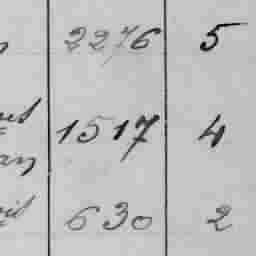 2276 5
1517 4
630 2